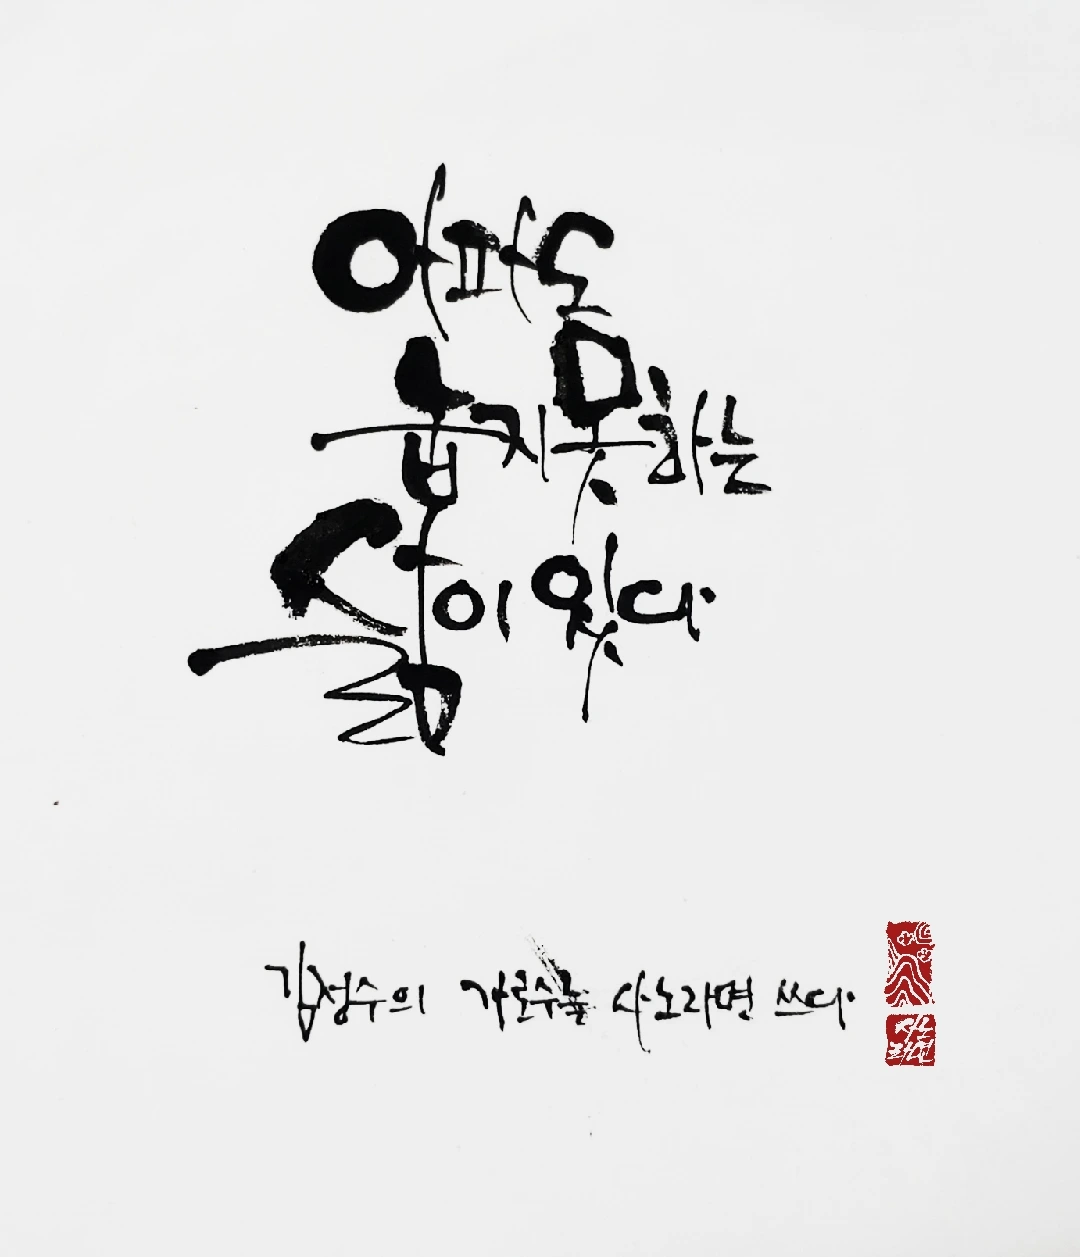 아파도
눕지 못하는
삶이 있다
김성수의 가로수를 사노라면 쓰다
사노
라면